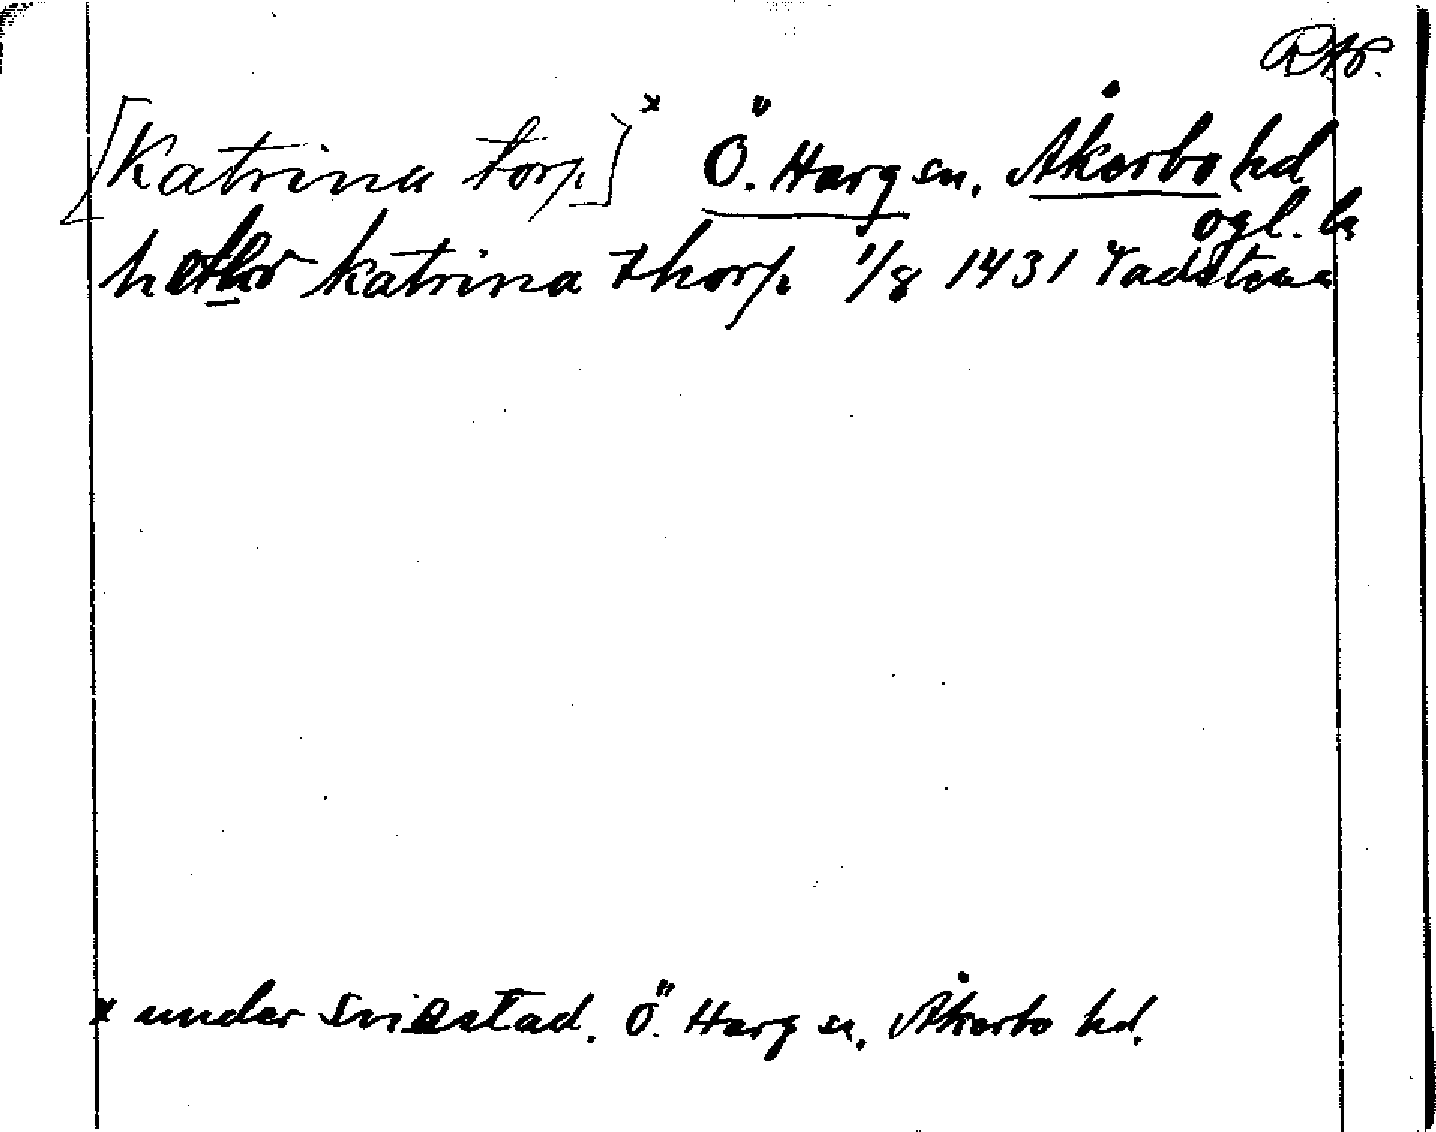 RAP.
[Katrina torp]x Ö. Harg sn, Åkerbo hd
ögl. ln
hether katrina thorp 1/8 1431 Vadstena
x under Sviestad. Ö. Harg sn, Åkerbo hd.